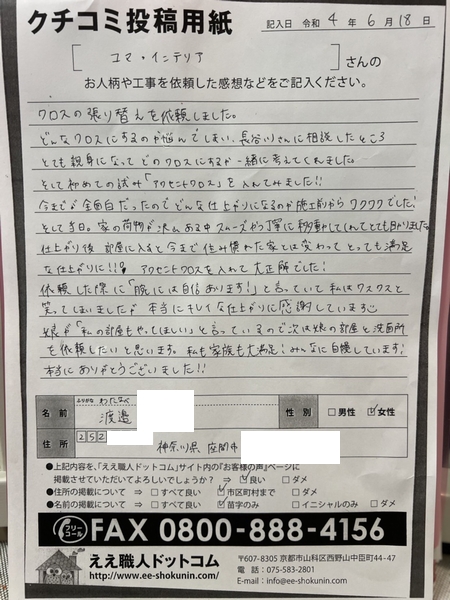 クチコミ投稿用紙
記入日 令和 4 年 6 月 18 日
コマ・インテリア さんの
お人柄や工事を依頼した感想などをご記入ください。
クロスの張り替えを依頼しました。
どんなクロスにするのか悩んでしまい、長谷川さんに相談したところ
とても親身になってどのクロスにするか一緒に考えてくれました。
そして初めての試み「アクセントクロス」を入れてみました!!
今までが全面白だったのでどんな仕上がりになるのか施工前からワクワクでした!
そして当日。家の荷物が沢山ある中スムーズかつ丁寧に移動してくれてとても助かりました。
仕上がり後 部屋に入ると今まで住み慣れた家とは変わってとっても満足
な仕上がりに!!! アクセントクロスを入れて大正解でした!
依頼した際に「腕には自信あります!」と言っていて私はクスクスと
笑ってしまいましたが本当にキレイな仕上がりに感謝しています
娘が「私の部屋もやってほしい」と言っているので次は娘の部屋と洗面所
を依頼したいと思います。私も家族も大満足!みんなに自慢しています!
本当にありがとうございました!!
ふりがな わたなべ
名前 渡邉 性別 □男性 ☑女性
住所 252 神奈川県 座間市
●上記内容を、「ええ職人ドットコム」サイト内の『お客様の声』ページに
掲載させていただいてよろしいでしょうか? ⇒ ☑良い □ダメ
●住所の掲載について ⇒ □すべて良い ☑市区町村まで □ダメ
●名前の掲載について ⇒ □すべて良い ☑苗字のみ □イニシャルのみ □ダメ
フリーコール FAX 0800-888-4156
ええ職人ドットコム
http://www.ee-shokunin.com/
〒607-8305 京都市山科区西野山中臣町44-47
電話:075-583-2801
E-mail:info@ee-shokunin.com